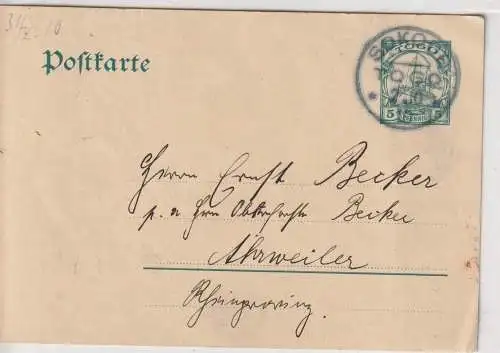 31/X.10
Postkarte
SOKODE
TOGO
TOGO
5 PFENNIG 5
Herrn Ernst Becker
p. a. Hrn Becker
Ahrweiler
Rheinprovinz.